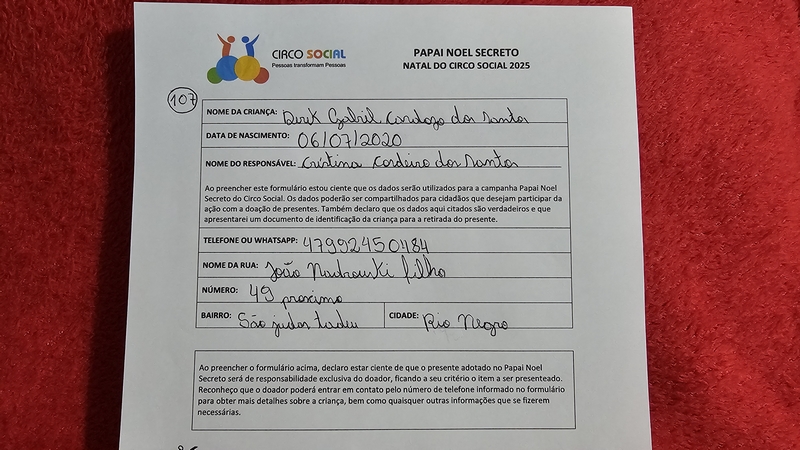 CIRCO SOCIAL
Pessoas transformam Pessoas
PAPAI NOEL SECRETO
NATAL DO CIRCO SOCIAL 2025
107
NOME DA CRIANÇA: Gabriel Cardozo dos Santos
DATA DE NASCIMENTO: 06/07/2020
NOME DO RESPONSÁVEL: Cristina Cordeiro dos Santos
Ao preencher este formulário estou ciente que os dados serão utilizados para a campanha Papai Noel
Secreto do Circo Social. Os dados poderão ser compartilhados para cidadãos que desejam participar da
ação com a doação de presentes. Também declaro que os dados aqui citados são verdadeiros e que
apresentarei um documento de identificação da criança para a retirada do presente.
TELEFONE OU WHATSAPP: 47992450484
NOME DA RUA: João filho
NÚMERO: 49 proximo
BAIRRO: São judas tadeu CIDADE: Rio Negro
Ao preencher o formulário acima, declaro estar ciente de que o presente adotado no Papai Noel
Secreto será de responsabilidade exclusiva do doador, ficando a seu critério o item a ser presenteado.
Reconheço que o doador poderá entrar em contato pelo número de telefone informado no formulário
para obter mais detalhes sobre a criança, bem como quaisquer outras informações que se fizerem
necessárias.